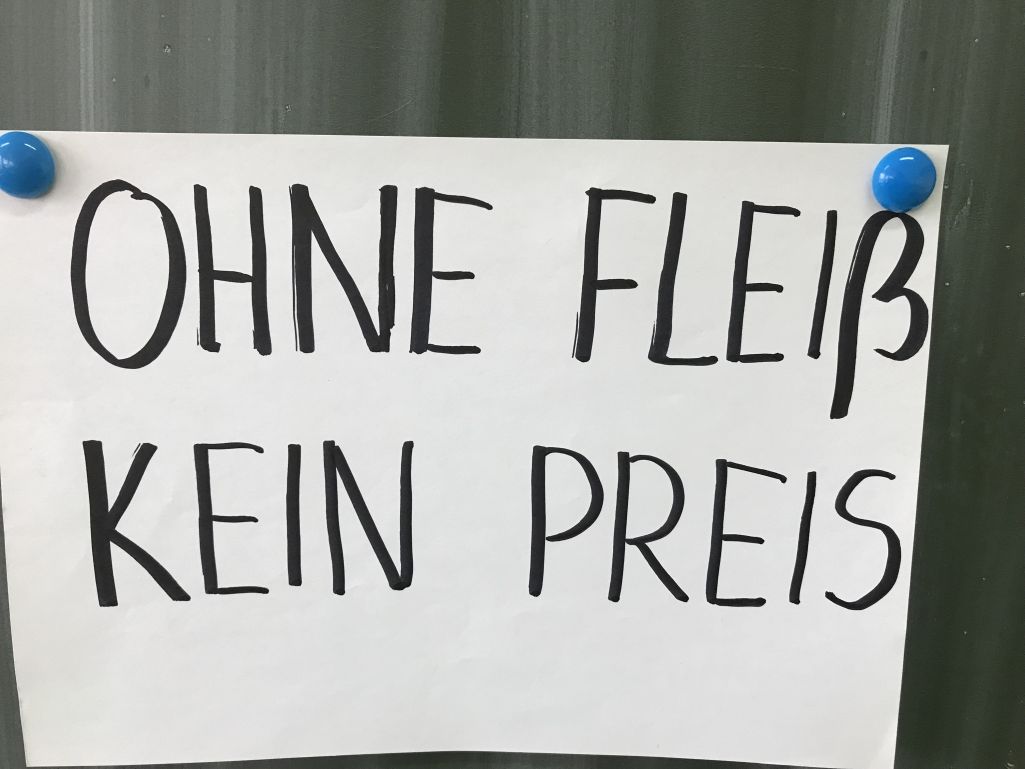 OHNE FLEIß
KEIN PREIS